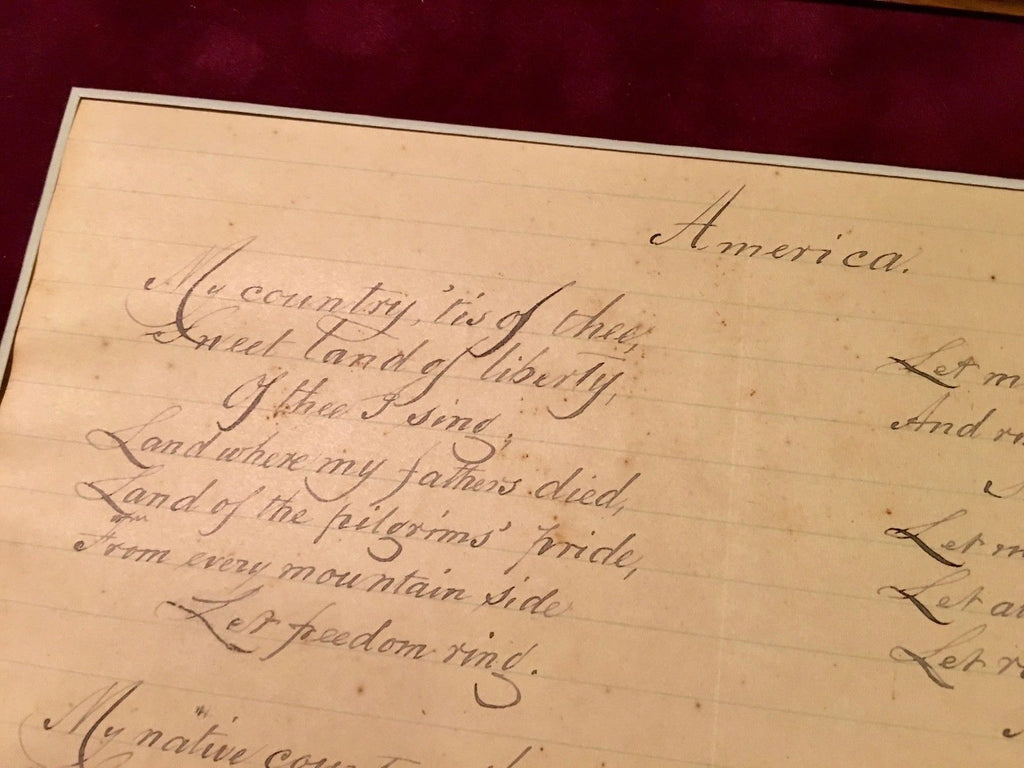 America.
My country, 'tis of thee,
Sweet land of liberty,
Of thee I sing;
Land where my fathers died,
Land of the pilgrims' pride,
From every mountain side
Let freedom ring.
My native
Let
And
Let
Let
Let